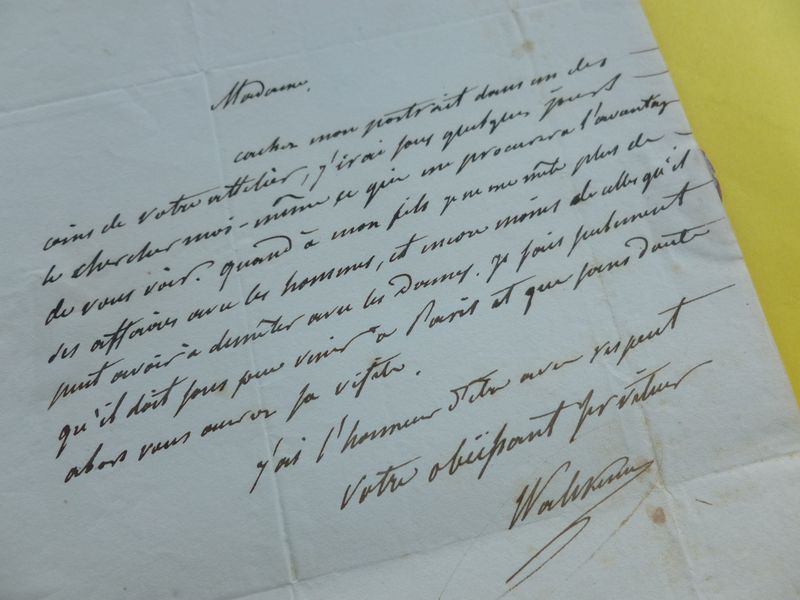 Madame,
cachez mon portrait dans un des
coins de votre attelier, j'irai sous quelques jours
le chercher moi-même ce qui me procurera l'avantage
de vous voir. quand à mon fils je ne me mêle plus de
ses affaires avec les hommes, et encore moins de celles qu'il
peut avoir à demêler avec les Dames. je sais seulement
qu'il doit sous peu venir à Paris et que sans doute
alors vous aurez sa visite.
j'ai l'honneur d'être avec respect
Votre obéissant serviteur